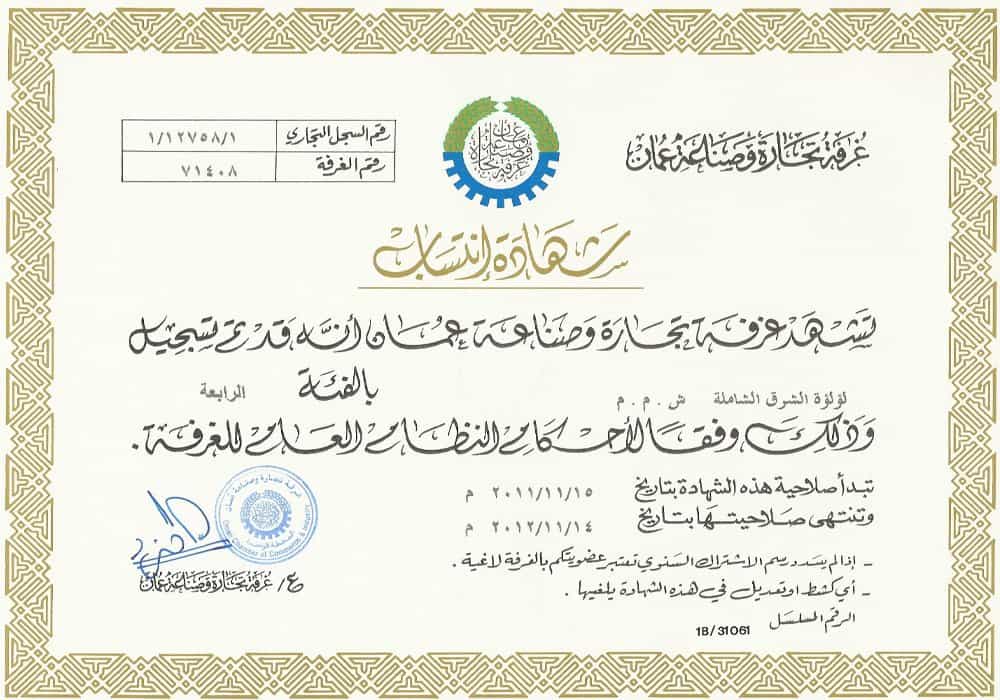 غرفة تجارة وصناعة عمان
غرفة تجارة وصناعة عمان
رقم السجل التجاري ١/١٢٧٥٨/١
رقم الغرفة ٧١٤٠٨
شهادة إنتساب
تشهد غرفة تجارة وصناعة عمان أنه قد تم تسجيل
لؤلؤة الشرق الشاملة ش.م.م بالفئة الرابعة
وذلك وفقا لأحكام النظام العام للغرفة.
تبدأ صلاحية هذه الشهادة بتاريخ ٢٠١١/١١/١٥ م
وتنتهى صلاحيتها بتاريخ ٢٠١٢/١١/١٤ م
- إذا لم يسدد رسم الاشتراك السنوي تعتبر عضويتكم بالغرفة لاغية .
- أي كشط او تعديل في هذه الشهادة يلغيها .
الرقم المسلسل 1B/31061
غرفة تجارة وصناعة عمان
Oman Chamber of Commerce & Industry
ع/ غرفة تجارة وصناعة عمان